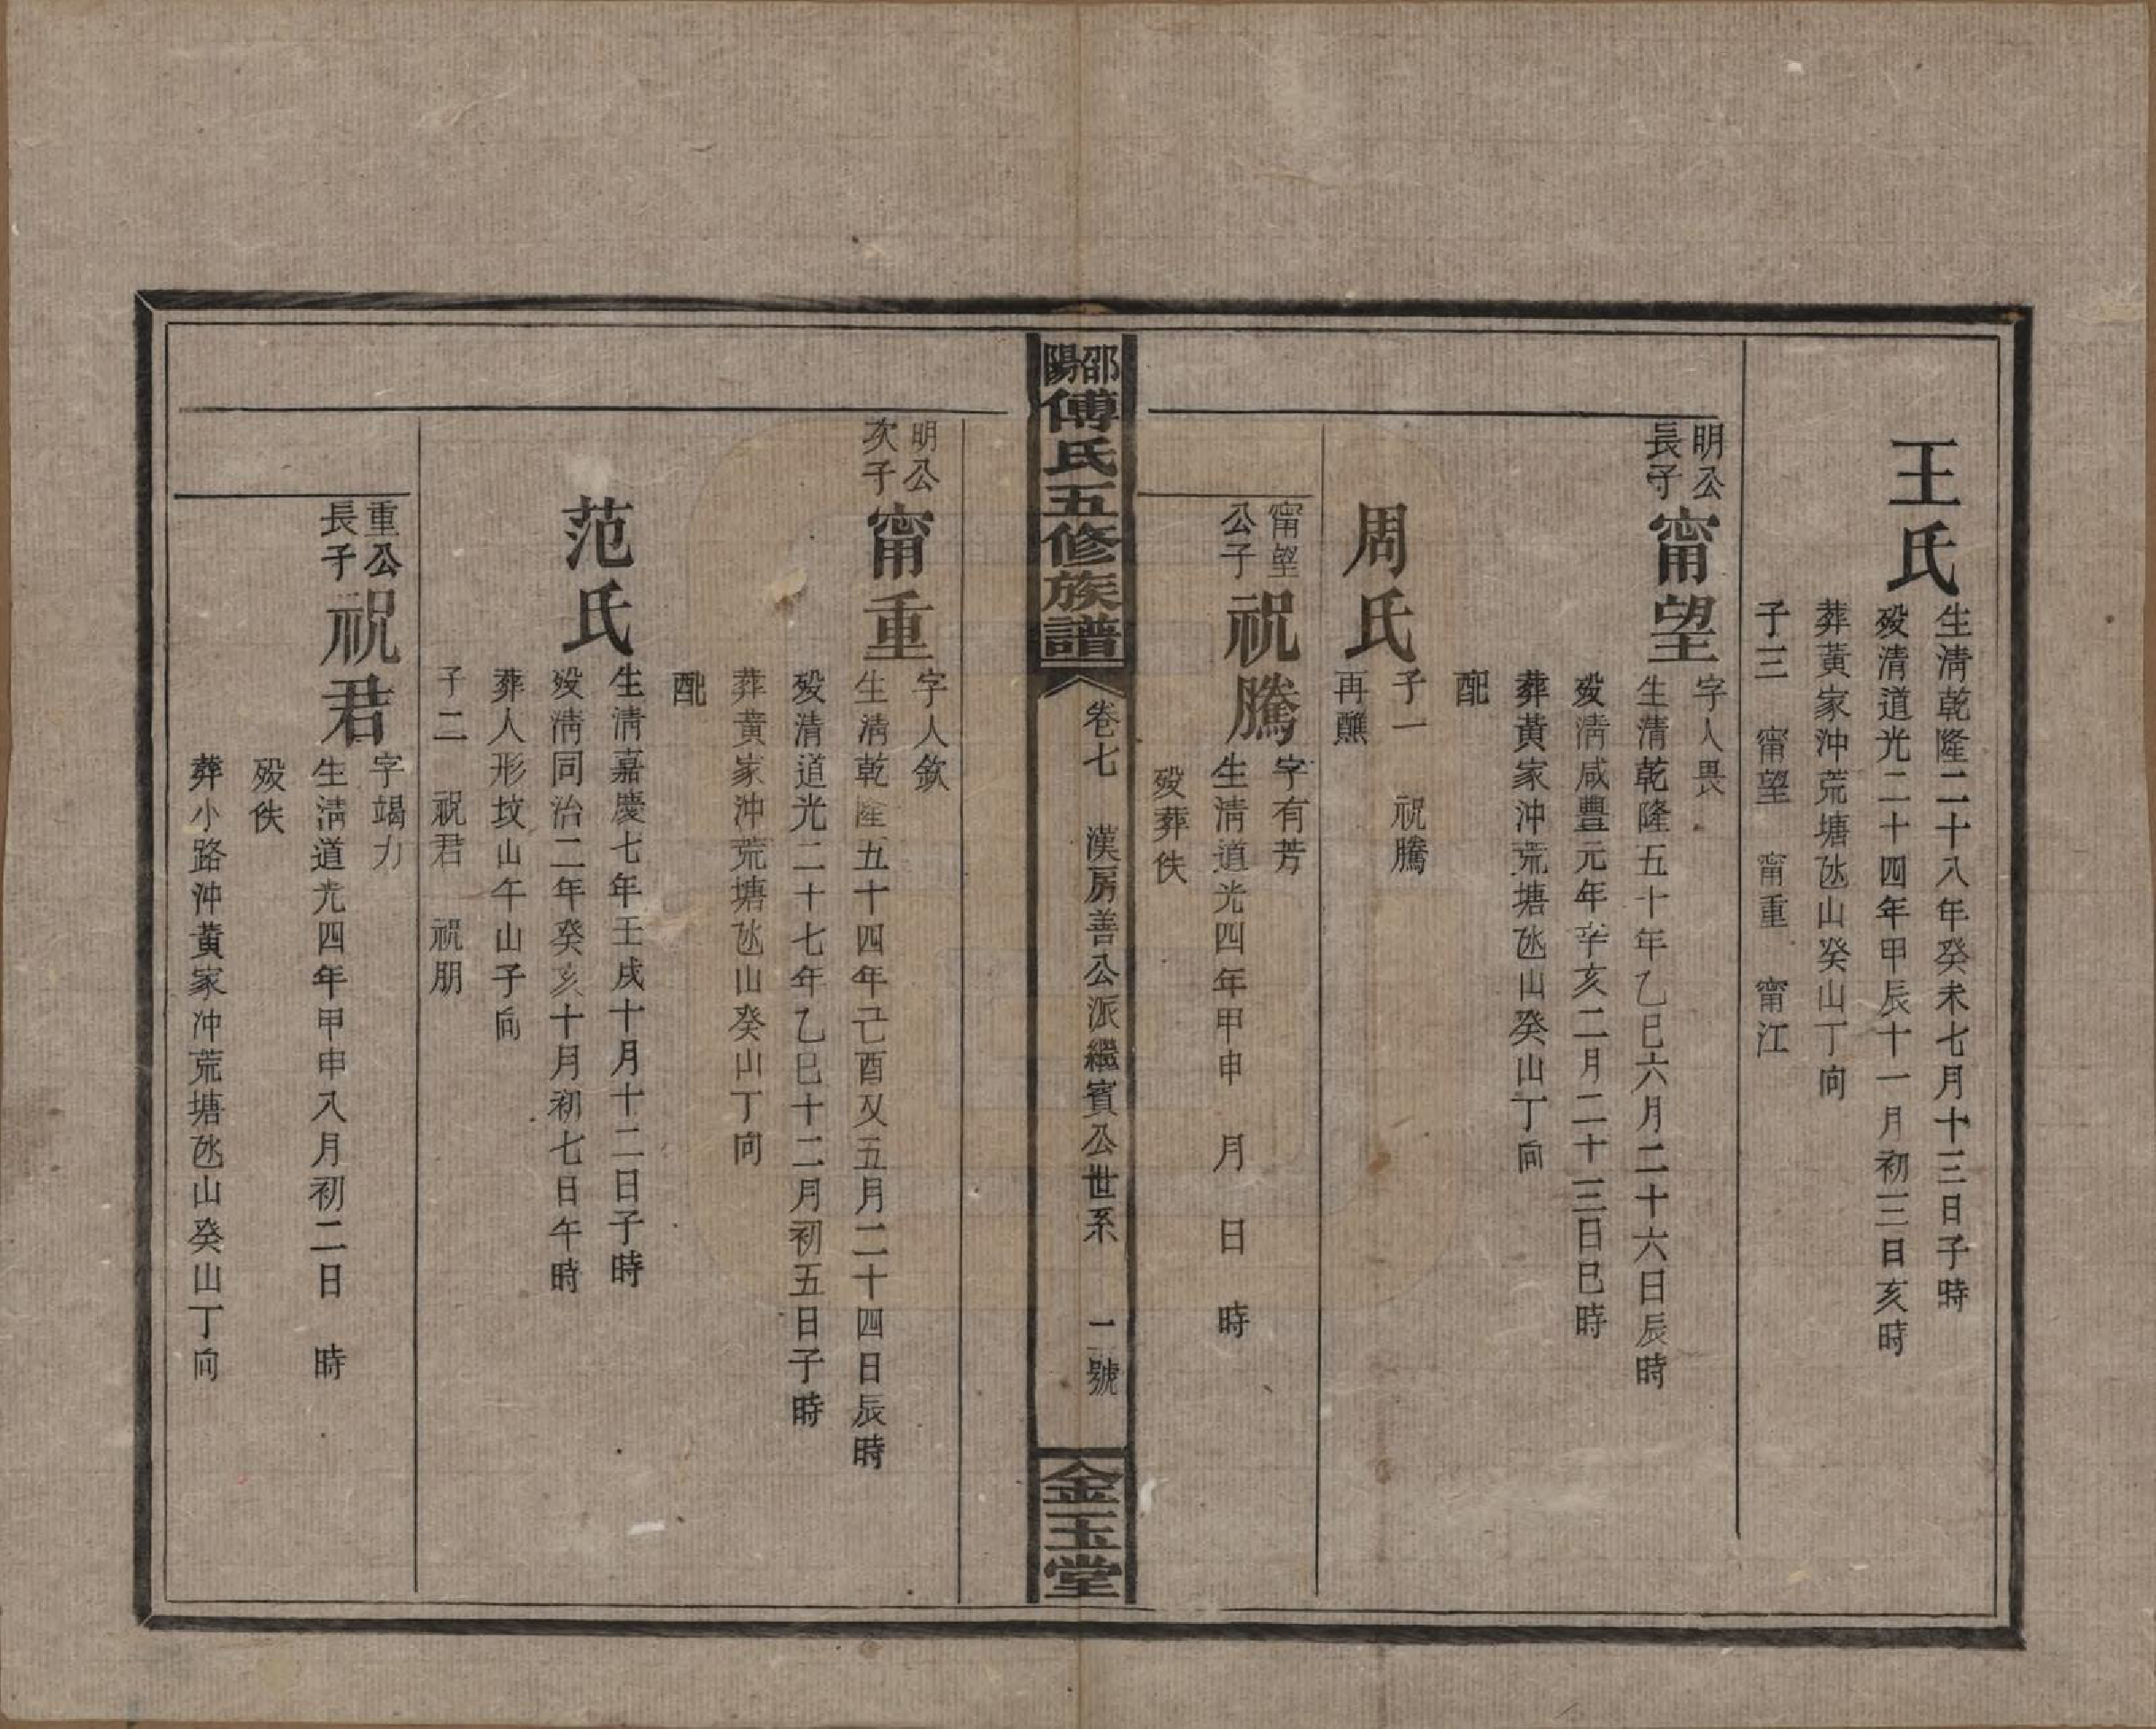 王氏
生清乾隆二十八年癸未七月十三日子時
歿清道光二十四年甲辰十一月初三日亥時
葬黃家冲荒塘氹山癸山丁向
子三　甯望　甯重　甯江
明公
長子
甯望
字人畏
生清乾隆五十年乙巳六月二十六日辰時
歿清咸豐元年辛亥二月二十三日巳時
葬黃家冲荒塘氹山癸山丁向
配
周氏
子一　祝騰
再醮
甯望
公子
祝騰
字有芳
生清道光四年甲申　月　日　時
歿葬佚
邵陽傅氏五修族譜
卷七　漢房善公派繼賓公世系　二號
金玉堂
明公
次子
甯重
字人欽
生清乾隆五十四年己酉又五月二十四日辰時
歿清道光二十七年乙巳十二月初五日子時
葬黃家冲荒塘氹山癸山丁向
配
范氏
生清嘉慶七年壬戌十月十二日子時
歿清同治二年癸亥十月初七日午時
葬人形坟山午山子向
子二　祝君　祝朋
重公
長子
祝君
字竭力
生清道光四年甲申八月初二日　時
歿佚
葬小路冲黃家冲荒塘氹山癸山丁向